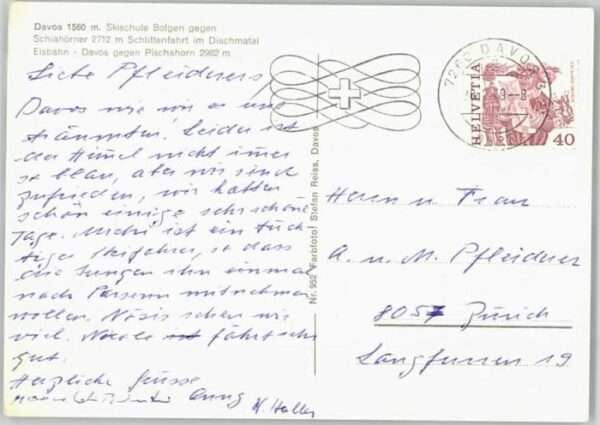 Davos 1560 m. Skischule Bolgen gegen
Schiahörner 2712 m Schlittenfahrt im Dischmatal
Eisbahn - Davos gegen Pischahorn 2982 m
Liebe Pfleiderers,
Davos wie wir es uns
erträumten! Leider ist
der Himmel nicht immer
so blau, aber wir sind
zufrieden, wir hatten
schon einige sehr schöne
Tage. ist ein tüch-
tiger Skifahrer, so dass
die Jungen ihn einmal
nach Parsenn mitnehmen
wollen. sehen wir
viel. Nicole fährt sehr
gut.
Herzliche Grüsse
W. Haller
Nr. 952 Farbfoto! Stefan Reiss, Davos
7260 DAVOS
HELVETIA
40
Herrn u. Frau
A. u. M. Pfleiderer
8057 Zürich
Langfurren 19